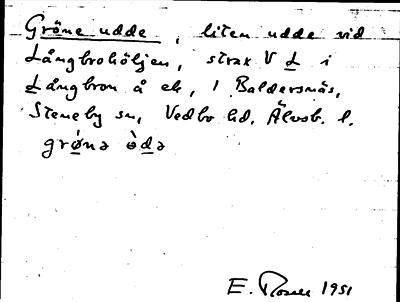 Gröne udde, liten udde vid
Långbrohöljen, strax V L i
Långbron å ek, 1 Baldersnäs,
Steneby sn, Vedbo hd. Älvsb. l.
grǿnə òdə
E. Rosell 1951